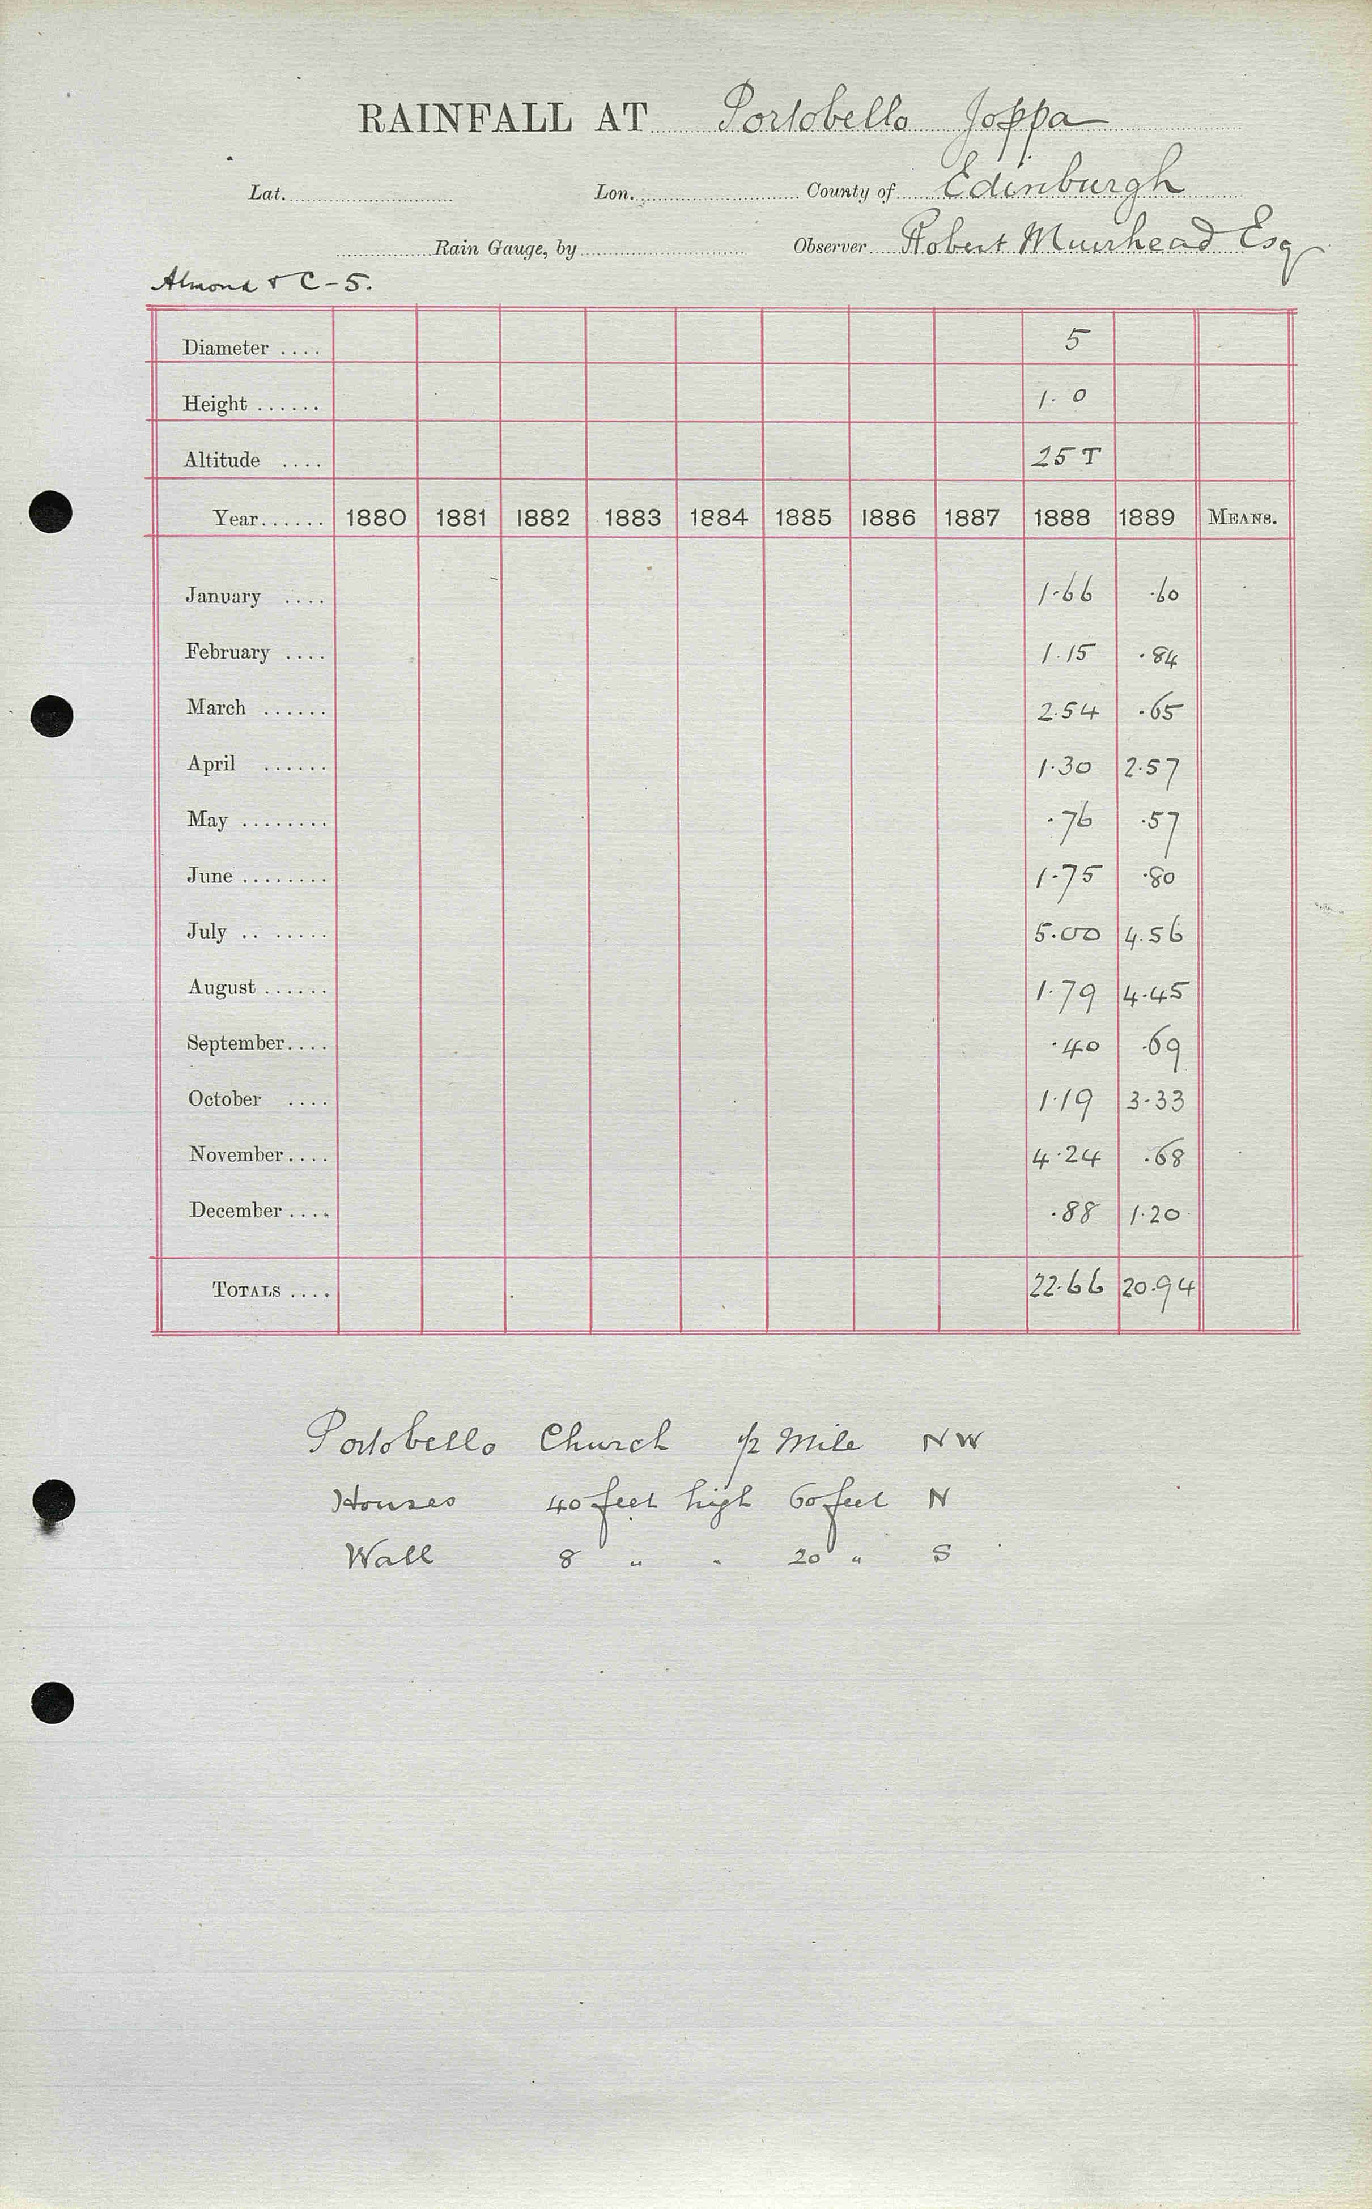 RAINFALL AT Portobello Joppa
Lat. Lon. County of Edinburgh
Rain Gauge, by Observer Robert Muirhead Esq
Almond & C-5.
Diameter .... 5
Height ...... 1.0
Altitude .... 25 T
Year...... 1880 1881 1882 1883 1884 1885 1886 1887 1888 1889 MEANS.
January .... 1.66 .60
February .... 1.15 .84
March ...... 2.54 .65
April ...... 1.30 2.57
May ........ .76 .57
June ........ 1.75 .80
July .. ..... 5.00 4.56
August ...... 1.79 4.45
September.... .40 .69
October .... 1.19 3.33
November.... 4.24 .68
December .... .88 1.20
TOTALS .... 22.66 20.94
Portobello Church 1/2 Mile NW
Houses 40 feet high 60 feet N
Wall 8 " " 20 " S